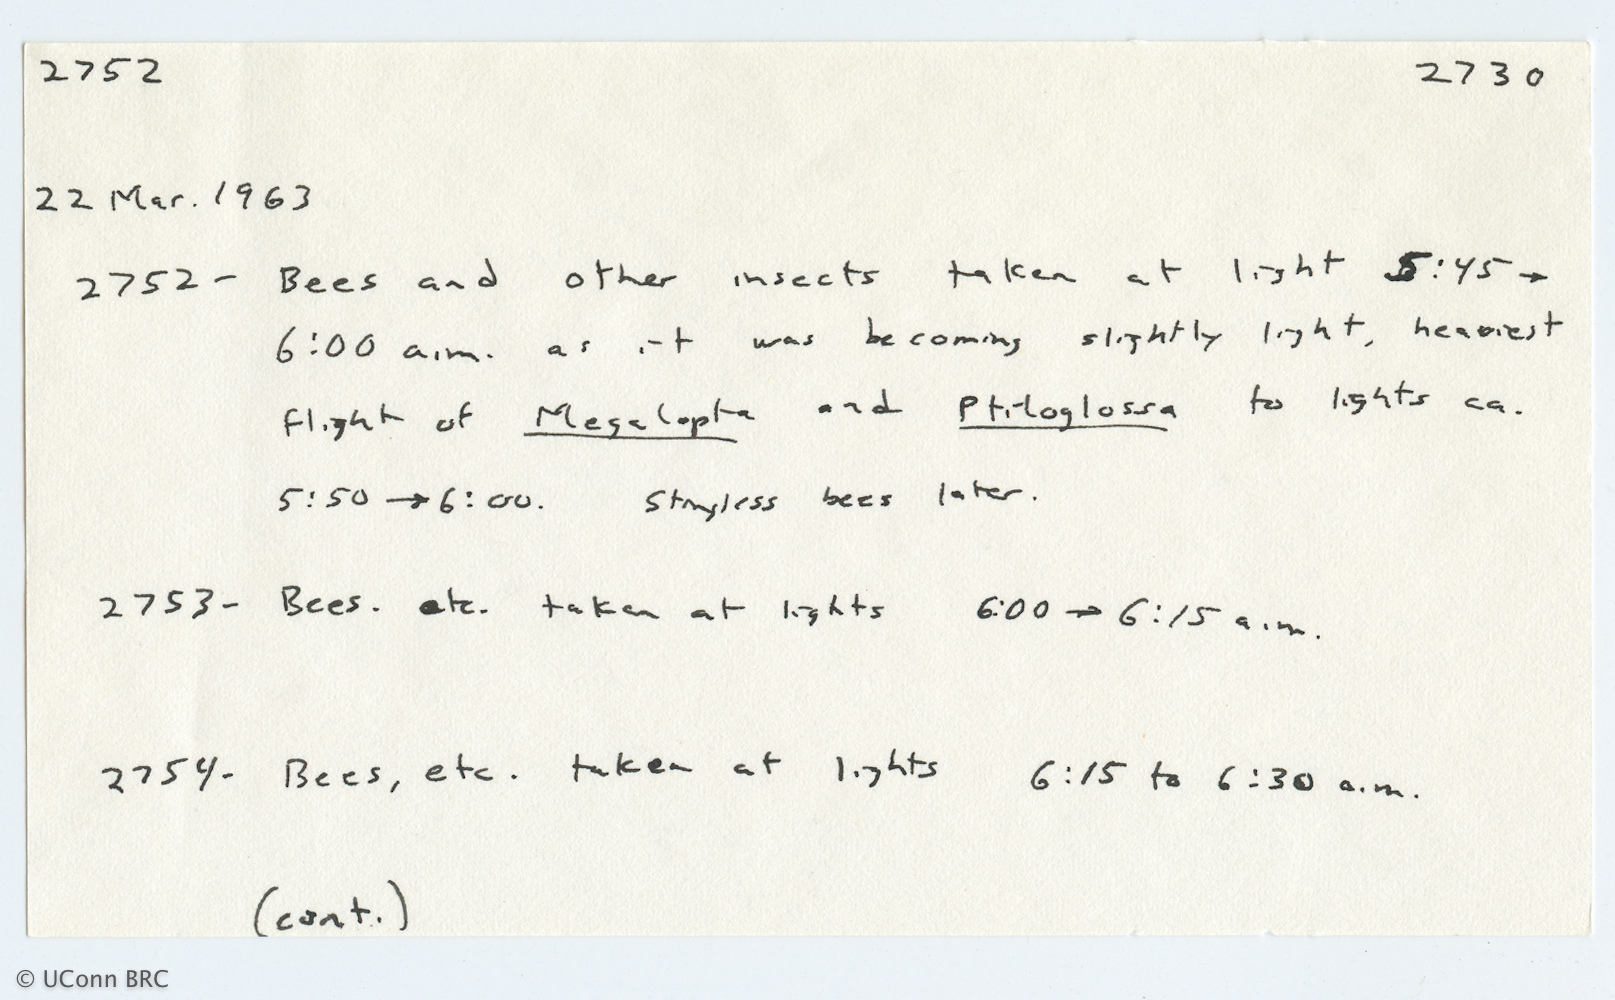 2752 2730
22 Mar. 1963
2752- Bees and other insects taken at light 5:45→
6:00 a.m. as it was becoming slightly light, heaviest
flight of Megalopta and Ptiloglossa to lights ca.
5:50 → 6:00. Stingless bees later.
2753- Bees. etc. taken at lights 6:00 → 6:15 a.m.
2754- Bees, etc. taken at lights 6:15 to 6:30 a.m.
(cont.)
© UConn BRC